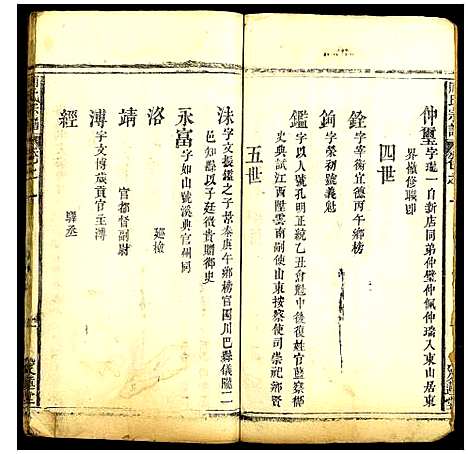 仲璽字遜一自新店同弟仲璧仲佩仲璠入東山居東
界橫修職郎
四世
銓字等衡宜德丙午鄉榜
鉤字榮勿號義魁
鑑字以人號孔明正統乙丑會魁中後復姓官監察御
史典試江西陞雲南副使山東按察使司崇祀鄉賢
五世
洙字文振鑑之子景泰庚午鄉榜官四川巴縣儀隴二
邑知縣以子廷徵貴贈御史
永富字如山號溪典官州同
洛 廵檢
靖 官都督副尉
溥字文博歲貢官主溥
經 驛丞